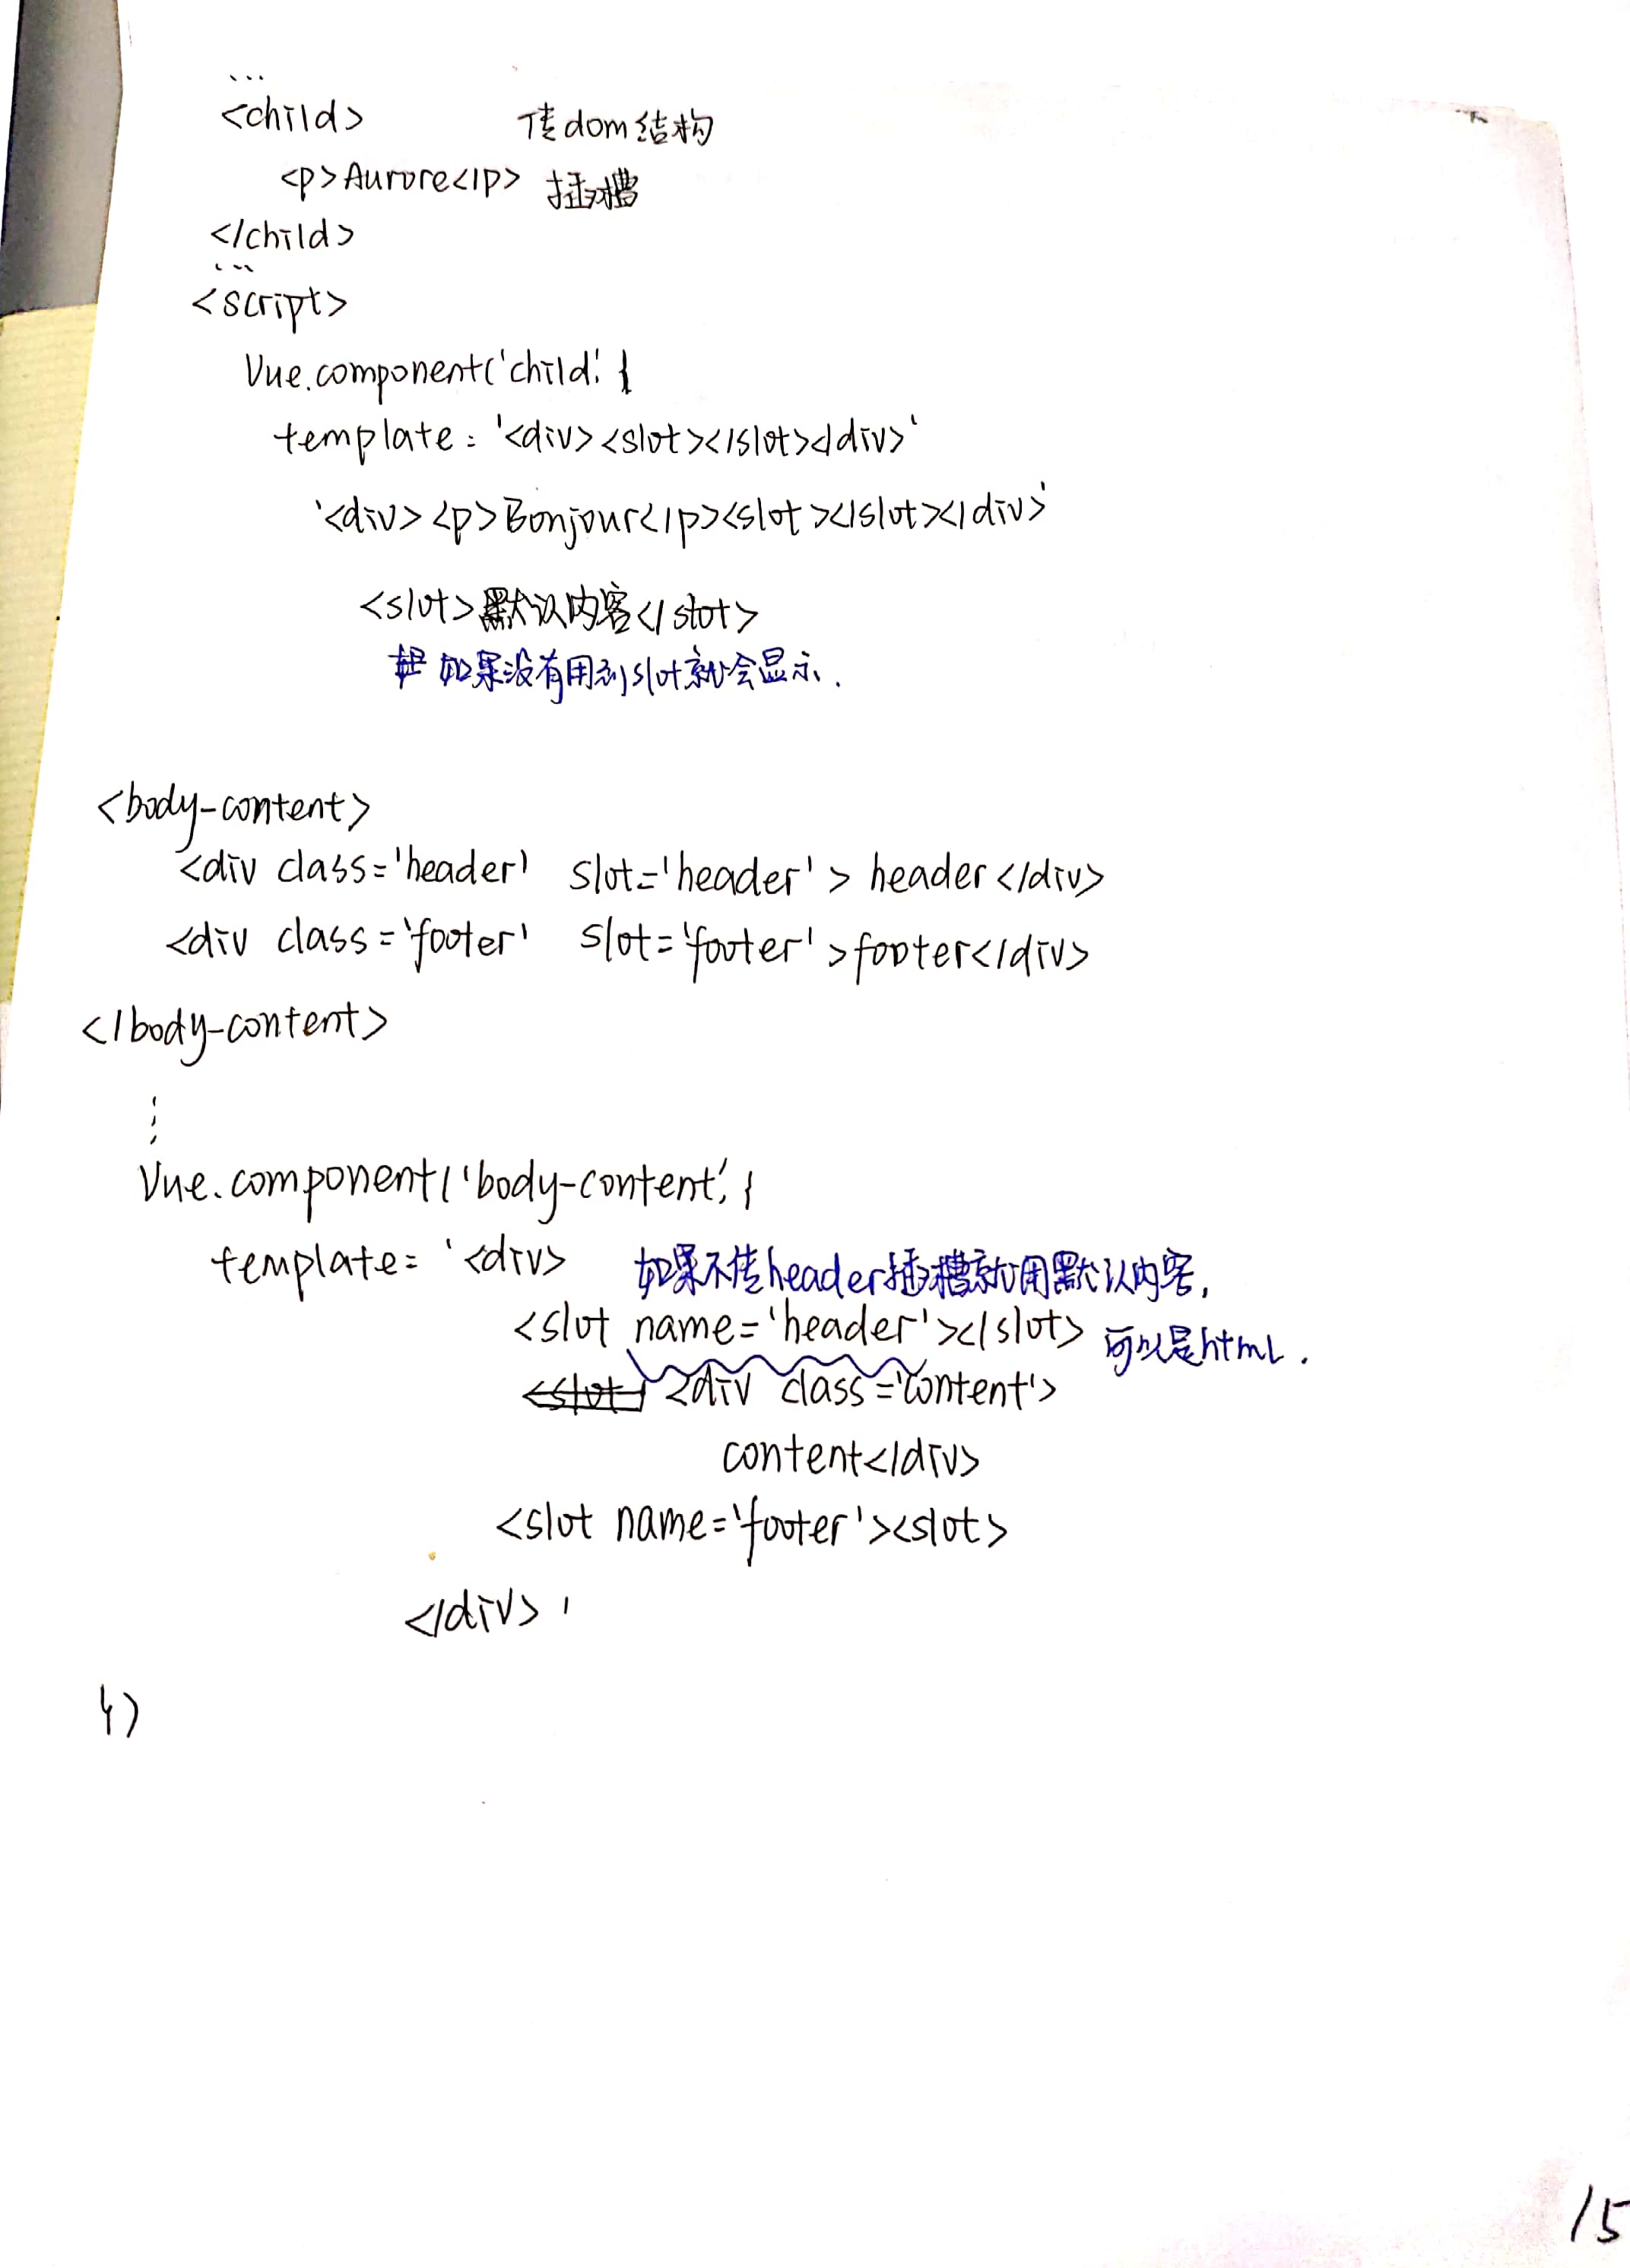 ...
<child> 传dom结构
<p>Aurore</p> 插槽
</child>
...
<script>
Vue.component('child', {
template: '<div><slot></slot></div>'
'<div><p>Bonjour</p><slot></slot></div>'
<slot>默认内容</slot>
如果没有用到slot就会显示.
<body-content>
<div class='header' slot='header'> header</div>
<div class='footer' slot='footer'>footer</div>
</body-content>
⋮
Vue.component('body-content', {
template: '<div>
如果不传header插槽就用默认内容,
<slot name='header'></slot> 可以是html.
<slot <div class='content'>
content</div>
<slot name='footer'><slot>
</div> '
})
15